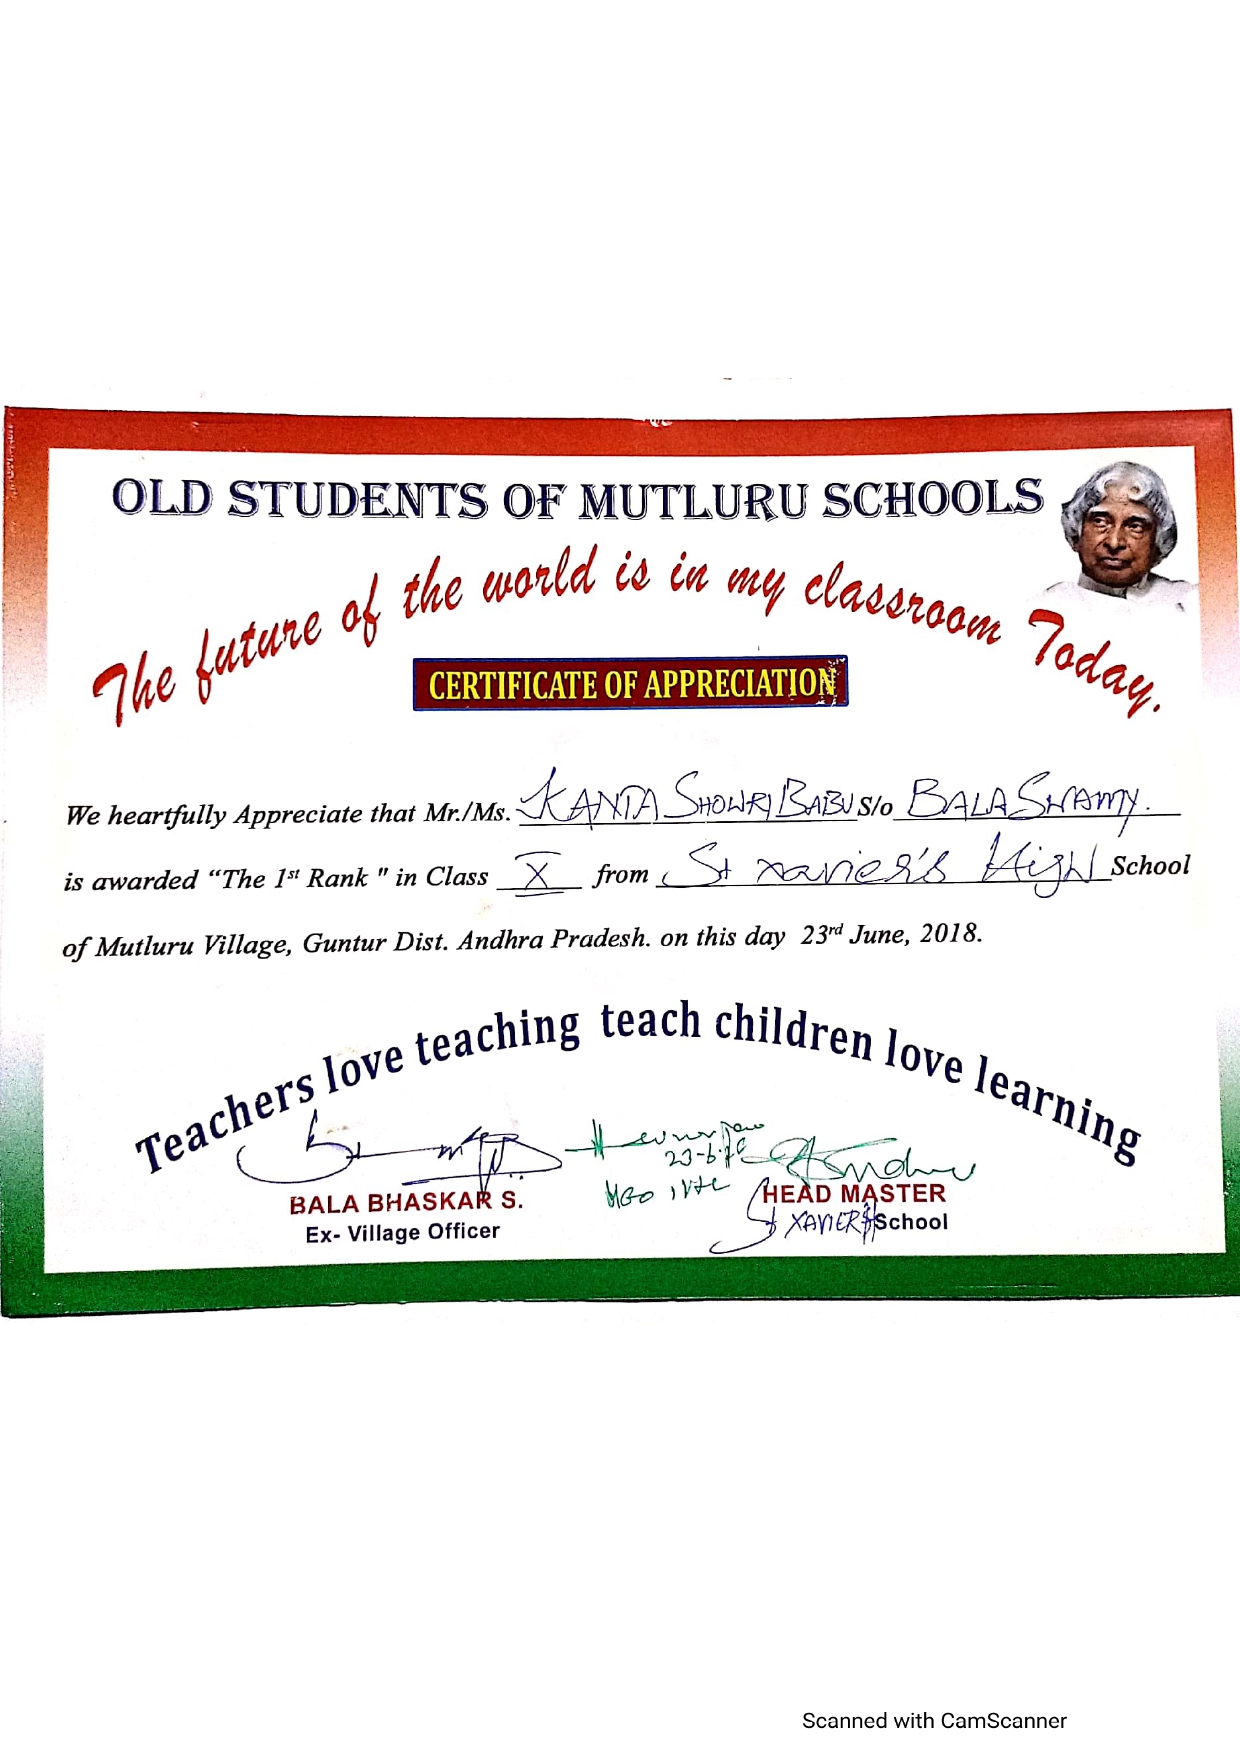 OLD STUDENTS OF MUTLURU SCHOOLS
The future of the world is in my classroom Today.
CERTIFICATE OF APPRECIATION
We heartfully Appreciate that Mr./Ms. KANTA SHOWRI BABU S/o BALA SWAMY.
is awarded “The 1st Rank " in Class X from St Xavier's High School
of Mutluru Village, Guntur Dist. Andhra Pradesh. on this day 23rd June, 2018.
Teachers love teaching teach children love learning
BALA BHASKAR S.
Ex- Village Officer
HEAD MASTER
St XAVIER'S School
Scanned with CamScanner